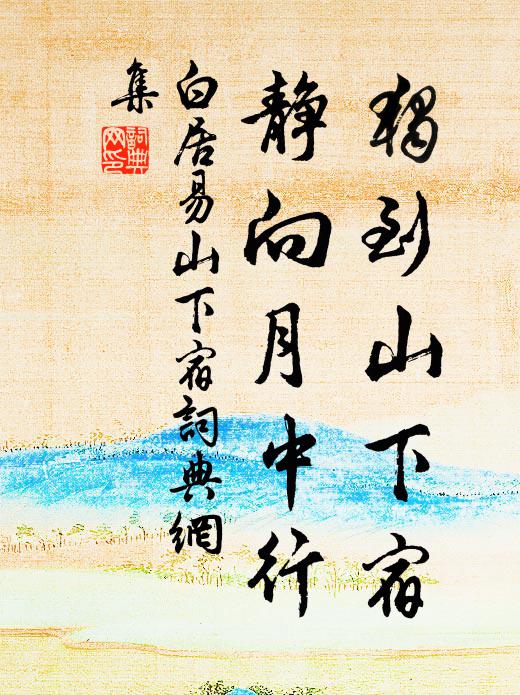 獨到山下宿
静向月中行
白居易山下宿詞典網
集
詞典
网印